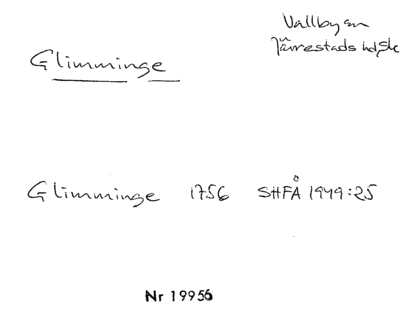 Vallby sn
Järrestads hd, Sk
Glimminge
Glimminge 1756 SHFÅ 1949:25
Nr 19956